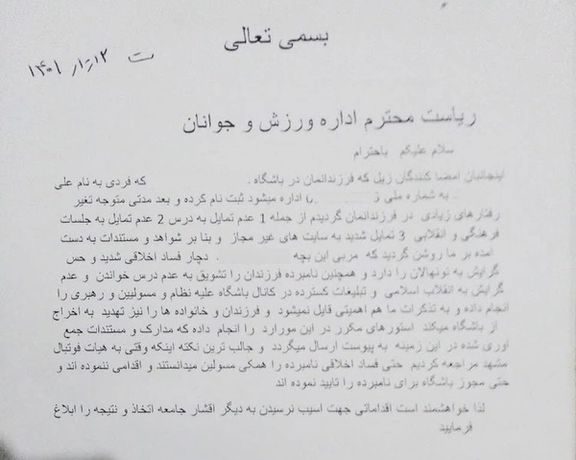 بسمی تعالی
ت ۱۴۰۱/۲/۱۲
ریاست محترم اداره ورزش و جوانان
سلام علیکم باحترام
اینجانبان امضا کنندگان زیل که فرزندانمان در باشگاه . که فردی به نام علی
به شماره ملی اداره میشود ثبت نام کرده و بعد مدتی متوجه تغیر
رفتارهای زیادی در فرزندانمان گردیدم از جمله 1 عدم تمایل به درس 2 عدم تمایل به جلسات
فرهنگی و انقلابی 3 تمایل شدید به سایت های غیر مجاز و بنا بر شواهد و مستندات به دست
امده بر ما روشن گردید که مربی این بچه دچار فساد اخلاقی شدید و حس
گرایش به نونهالان را دارد و همچنین نامبرده فرزندان را تشویق به عدم درس خواندن و عدم
گرایش به انقلاب اسلامی و تبلیغات گسترده در کانال باشگاه علیه نظام و مسولیین و رهبری را
انجام داده و به تذکرات ما هم اهمیتی قایل نمیشود و فرزندان و خانواده ها را نیز تهدید به اخراج
از باشگاه میکند استورهای مکرر در این موارد را انجام داده که مدارک و مستندات جمع
اوری شده در این زمینه به پیوست ارسال میگردد و جالب ترین نکته اینکه وقتی به هیات فوتبال
مشهد مراجعه کردیم حتی فساد اخلاقی نامبرده را همکی مسولین میدانستند و اقدامی ننموده اند و
حتی مجوز باشگاه برای نامبرده را تایید نموده اند
لذا خواهشمند است اقداماتی جهت اسیب نرسیدن به دیگر اقشار جامعه اتخاذ و نتیجه را ابلاغ
فرمایید